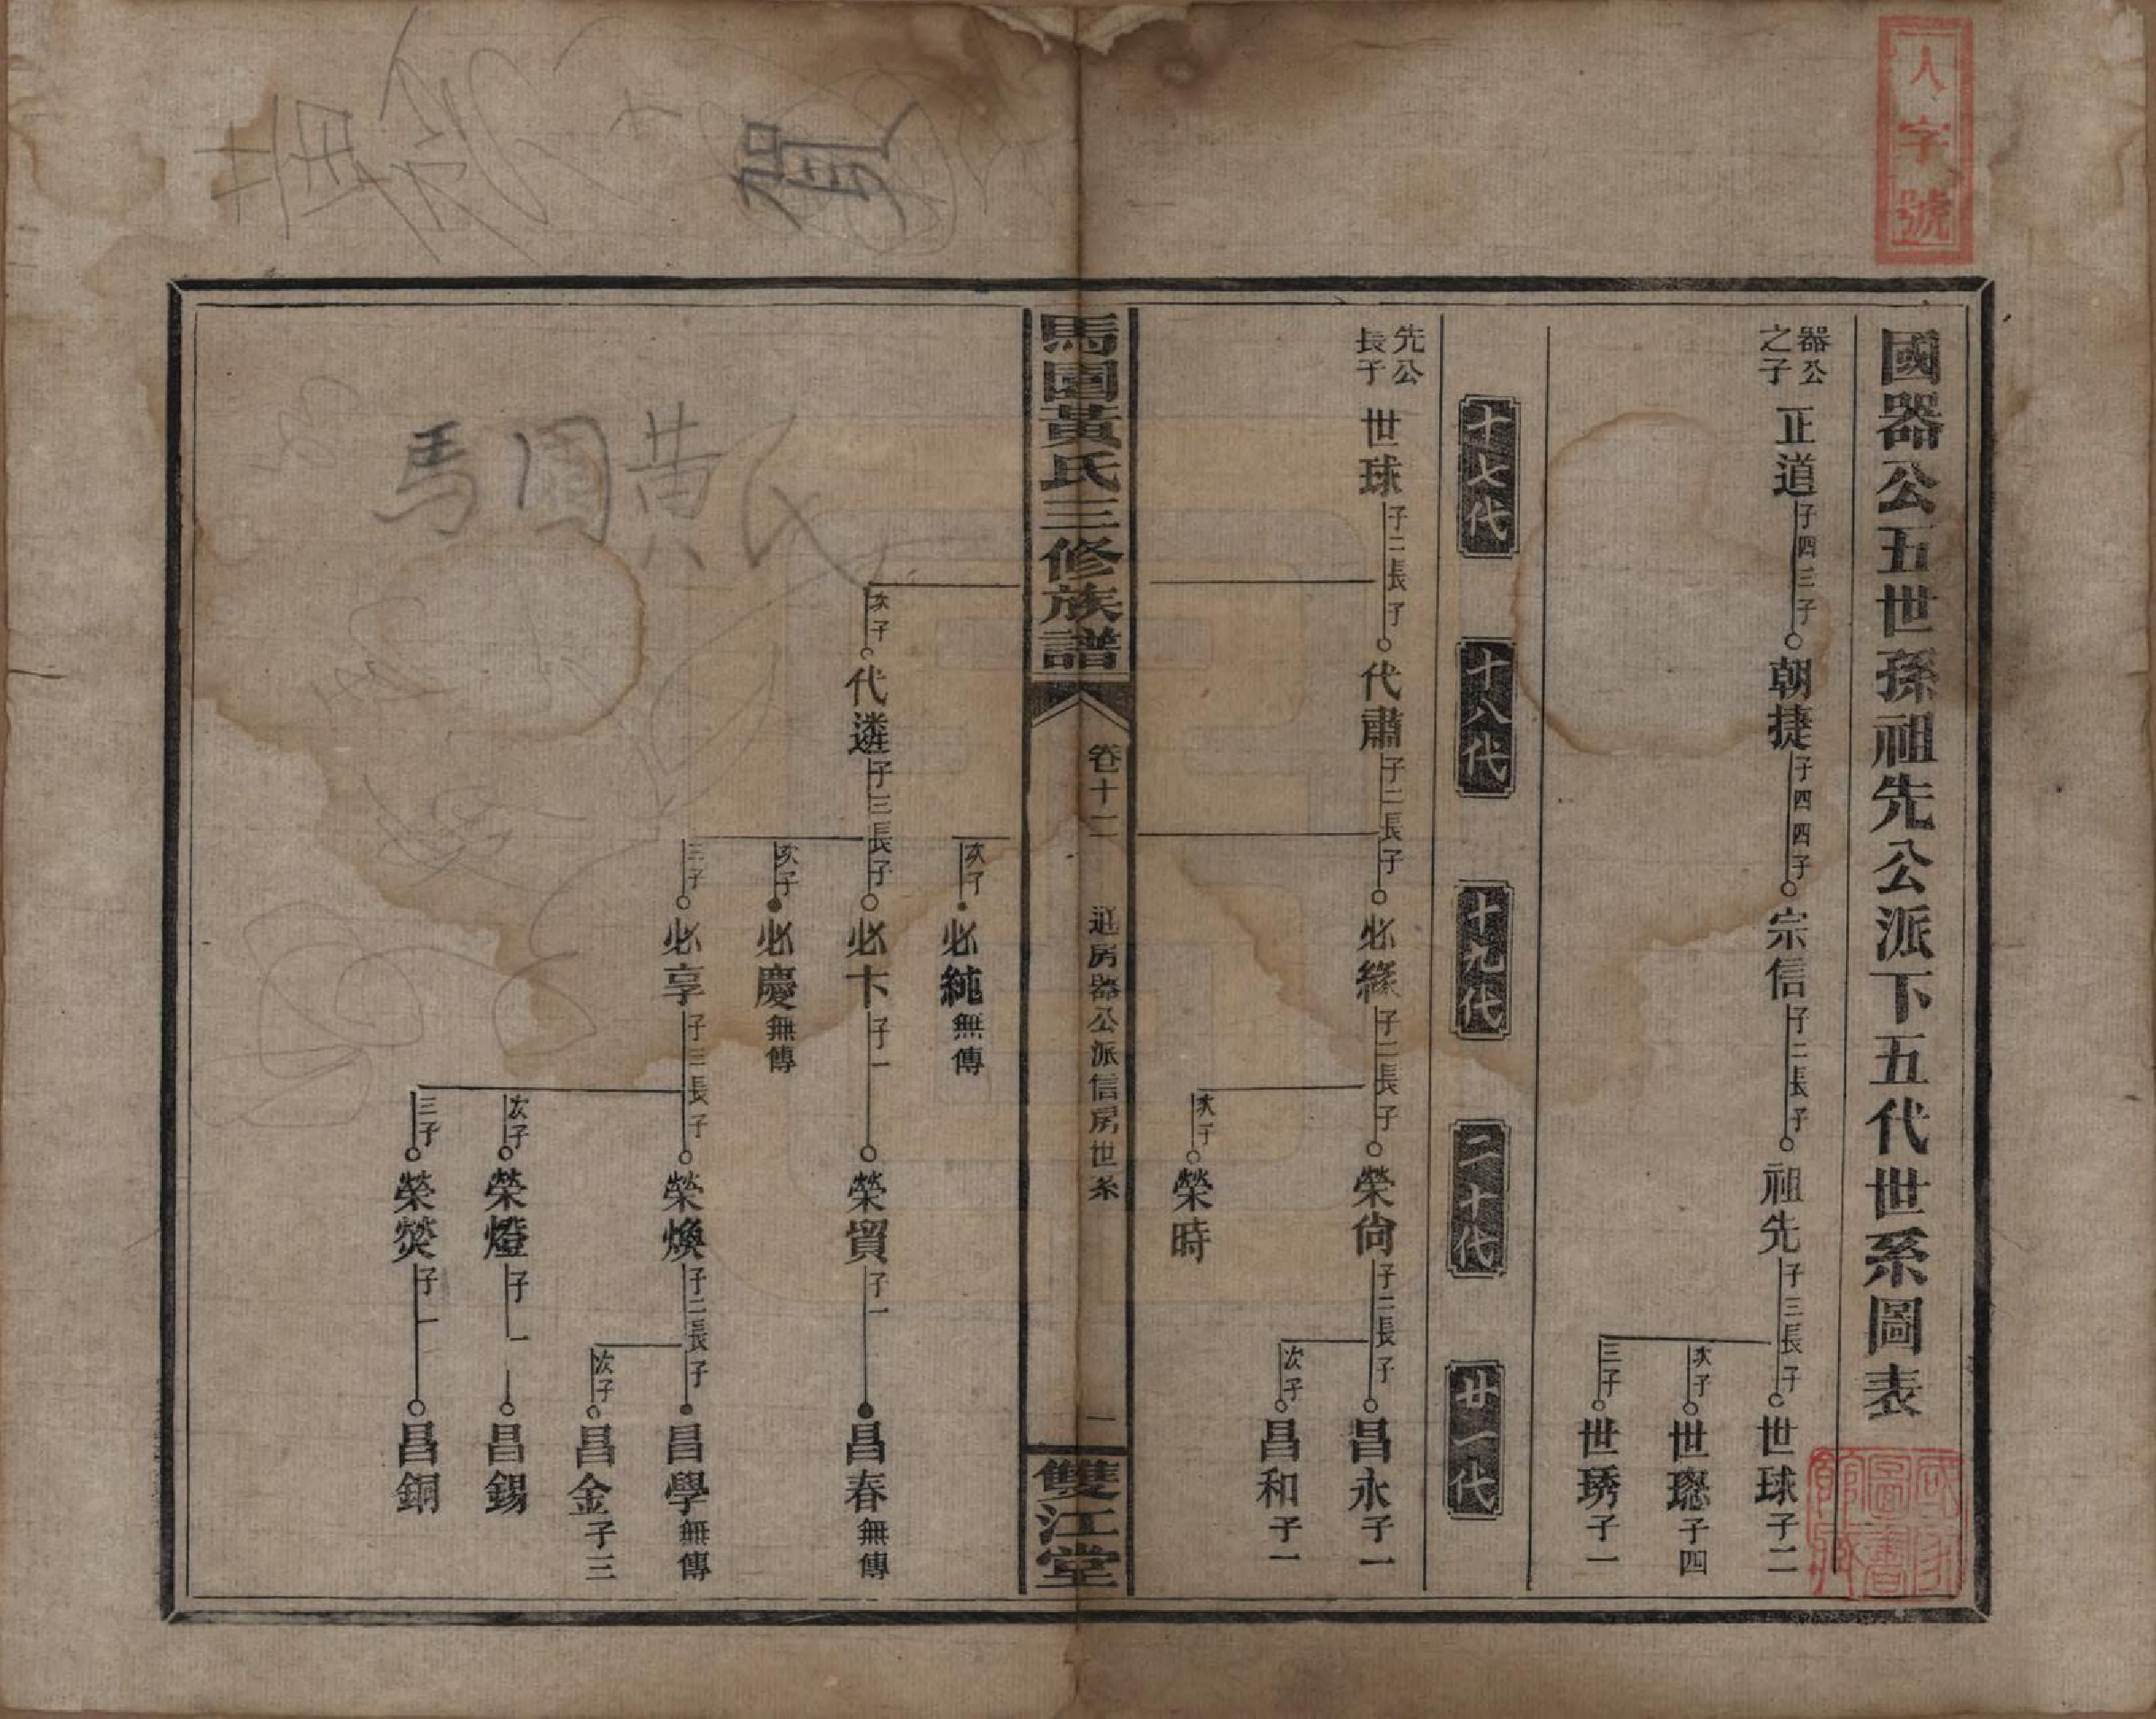 人字號
國器公五世孫祖先公派下五代世系圖表
器公之子 正道 子四三子 朝捷 子四四子 宗信 子二長子 祖先 子三長子 世球 子二
次子 世璁 子四
三子 世琇 子一
十七代 十八代 十九代 二十代 廿一代
先公長子 世球 子二長子 代肅 子二長子 必緣 子二長子 榮尙 子二長子 昌永 子一
次子 昌和 子一
次子 榮時
馬園黃氏三修族譜 卷十二 逌房器公派信房世系 一 雙江堂
次子 必純 無傳
次子 代遴 子三長子 必卞 子一 榮貿 子一 昌春 無傳
次子 必慶 無傳
三子 必享 子三長子 榮煥 子二長子 昌學 無傳
次子 昌金 子三
次子 榮燈 子一 昌錫
三子 榮熒 子一 昌銅
馬園黃氏